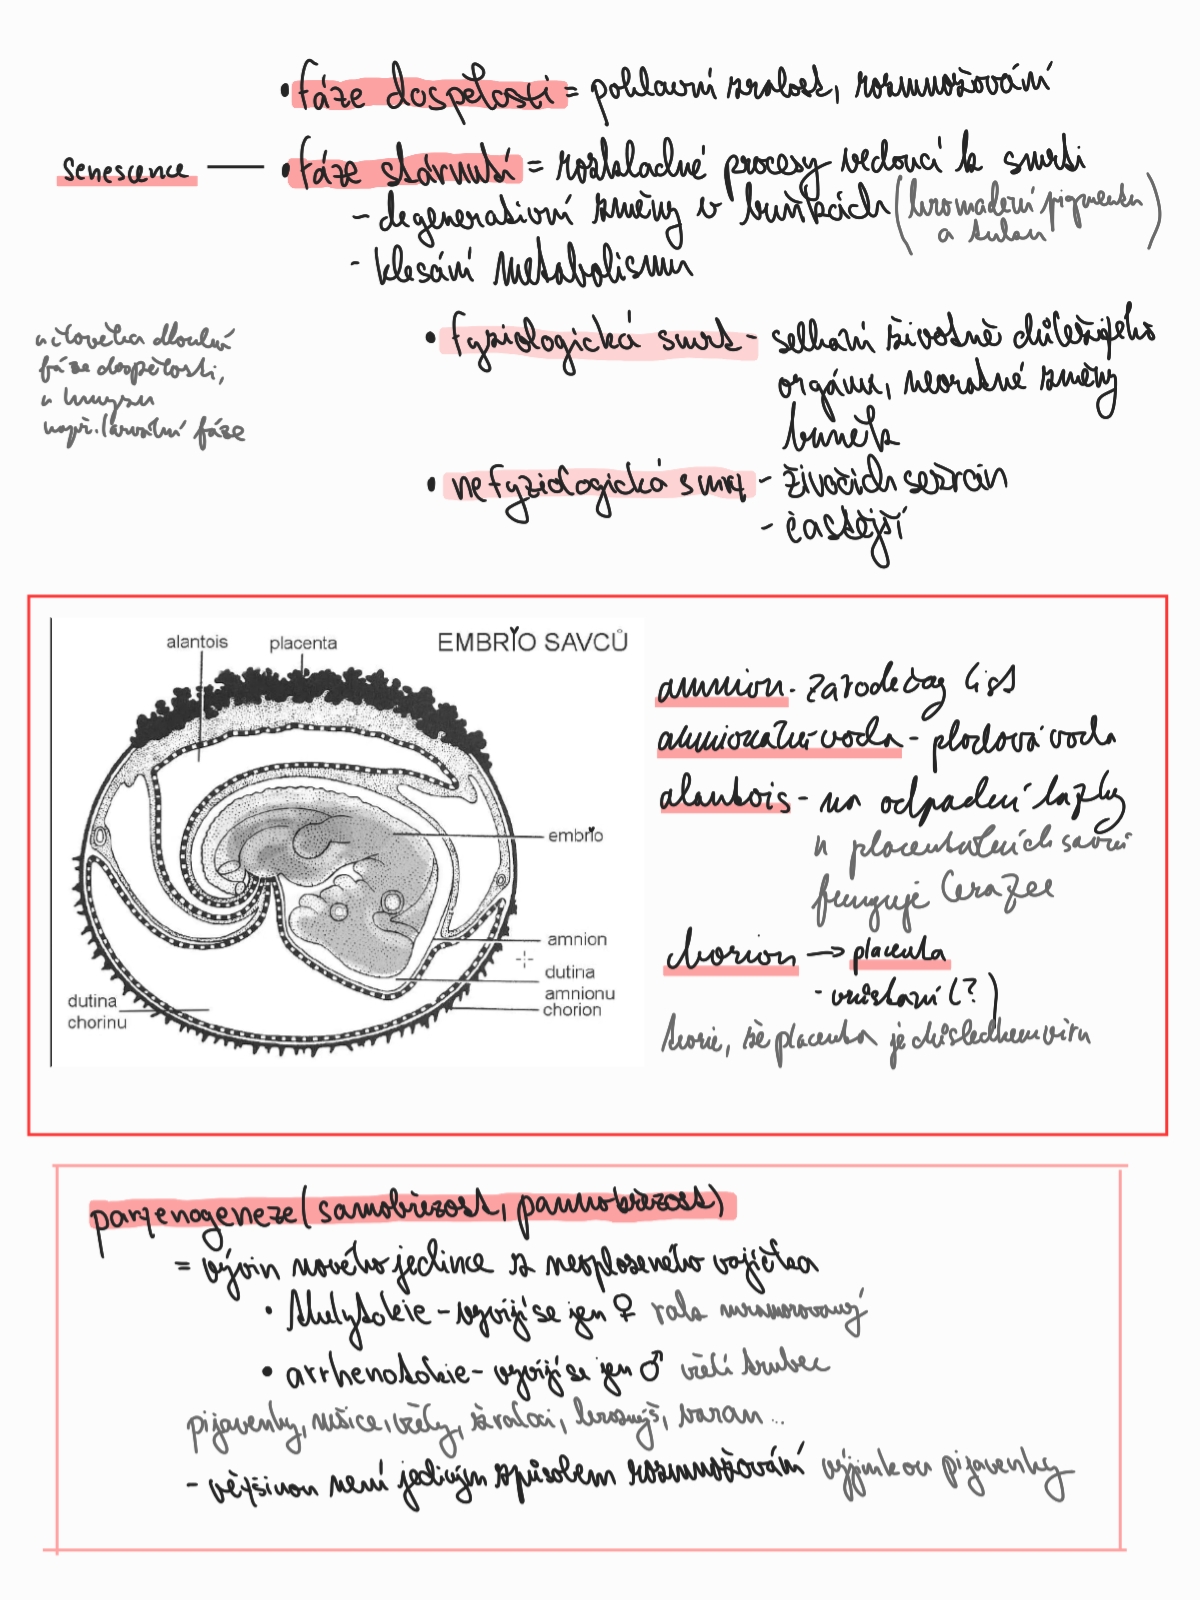 • fáze dospělosti = pohlavní zralost, rozmnožování
senescence — • fáze stárnutí = rozkladné procesy vedoucí k smrti
- degenerativní změny v buňkách (hromadění pigmentu
a tuku)
- klesání metabolismu
u člověka dlouhá
fáze dospělosti,
u hmyzu
např. larvální fáze
• fyziologická smrt - selhání životně důležitého
orgánu, nevratné změny
buněk
• nefyziologická smrt - živočich sežrán
- častější
EMBRYO SAVCŮ
alantois
placenta
embryo
amnion
dutina
amnionu
chorion
dutina
chorinu
amnion - zárodečný list
amnionální voda - plodová voda
alantois - na odpadní látky
u placentálních savců
funguje
chorion → placenta
- vmístění (?)
teorie, že placenta je důsledkem viru
partenogeneze (samobřezost, pannobřezost)
= vývin nového jedince z neoplozeného vajíčka
• thelytokie - vyvíjí se jen ♀ rak mramorovaný
• arrhenotokie - vyvíjí se jen ♂ včelí trubec
pijavenky, mšice, včely, žraloci, hroznýš, varan...
- většinou není jediným způsobem rozmnožování výjimkou pijavenky